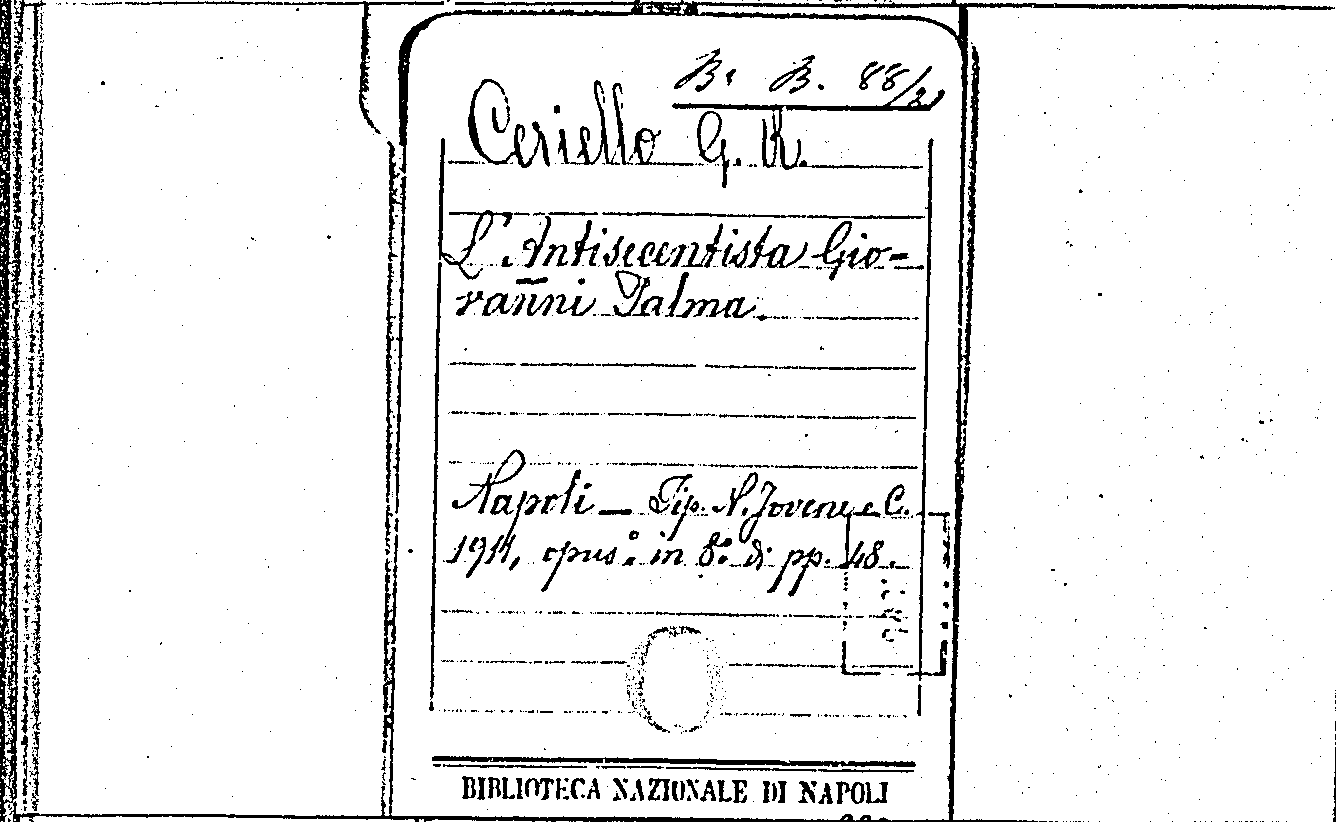 B. B. 88/21
Ceriello G. R.
L'Antisecentista Gio-
vanni Palma.
Napoli — Tip. N. Jovene e C.
1914, opus.° in 8.° di pp. 48.
BIBLIOTECA NAZIONALE DI NAPOLI